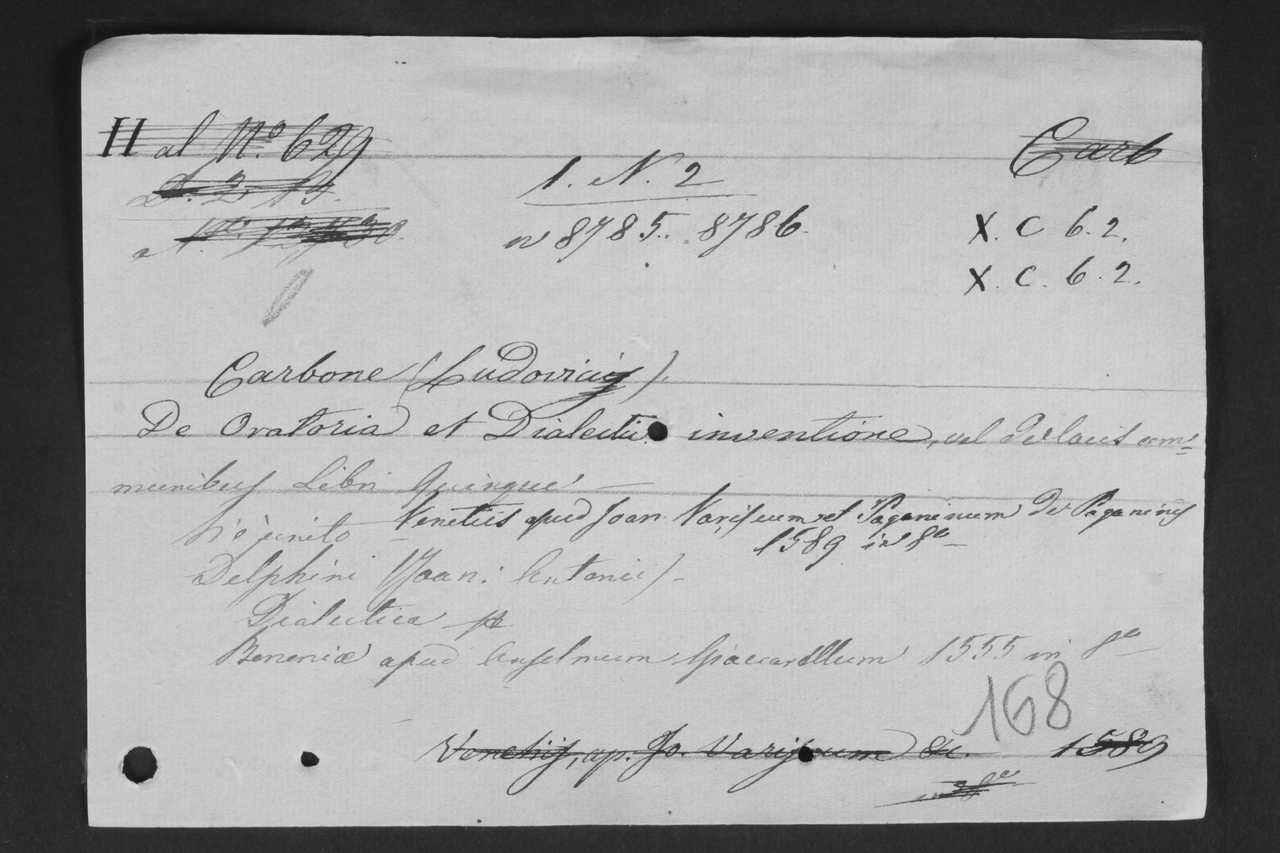 H al N.º 629
Carb
D. 2 19.
1. N. 2
n 8785. 8786.
X. C 6. 2.
X. C. 6. 2.
Carbone (Ludovicus).
De Oratoria et Dialectic inventione, vel De locis com=
munibus Libri Quinque –
Vi è unito – Venetiis apud Joan Variscum et Paganinum de Paganinis
1589 in 8º –
Delphini (Joan: Antonii) –
Dialectica
Bononiæ apud Anselmum Giaccarellum 1555 in 8º –
168
Venetiis, ap. Jo. Variscum &c. 1589
in 8º